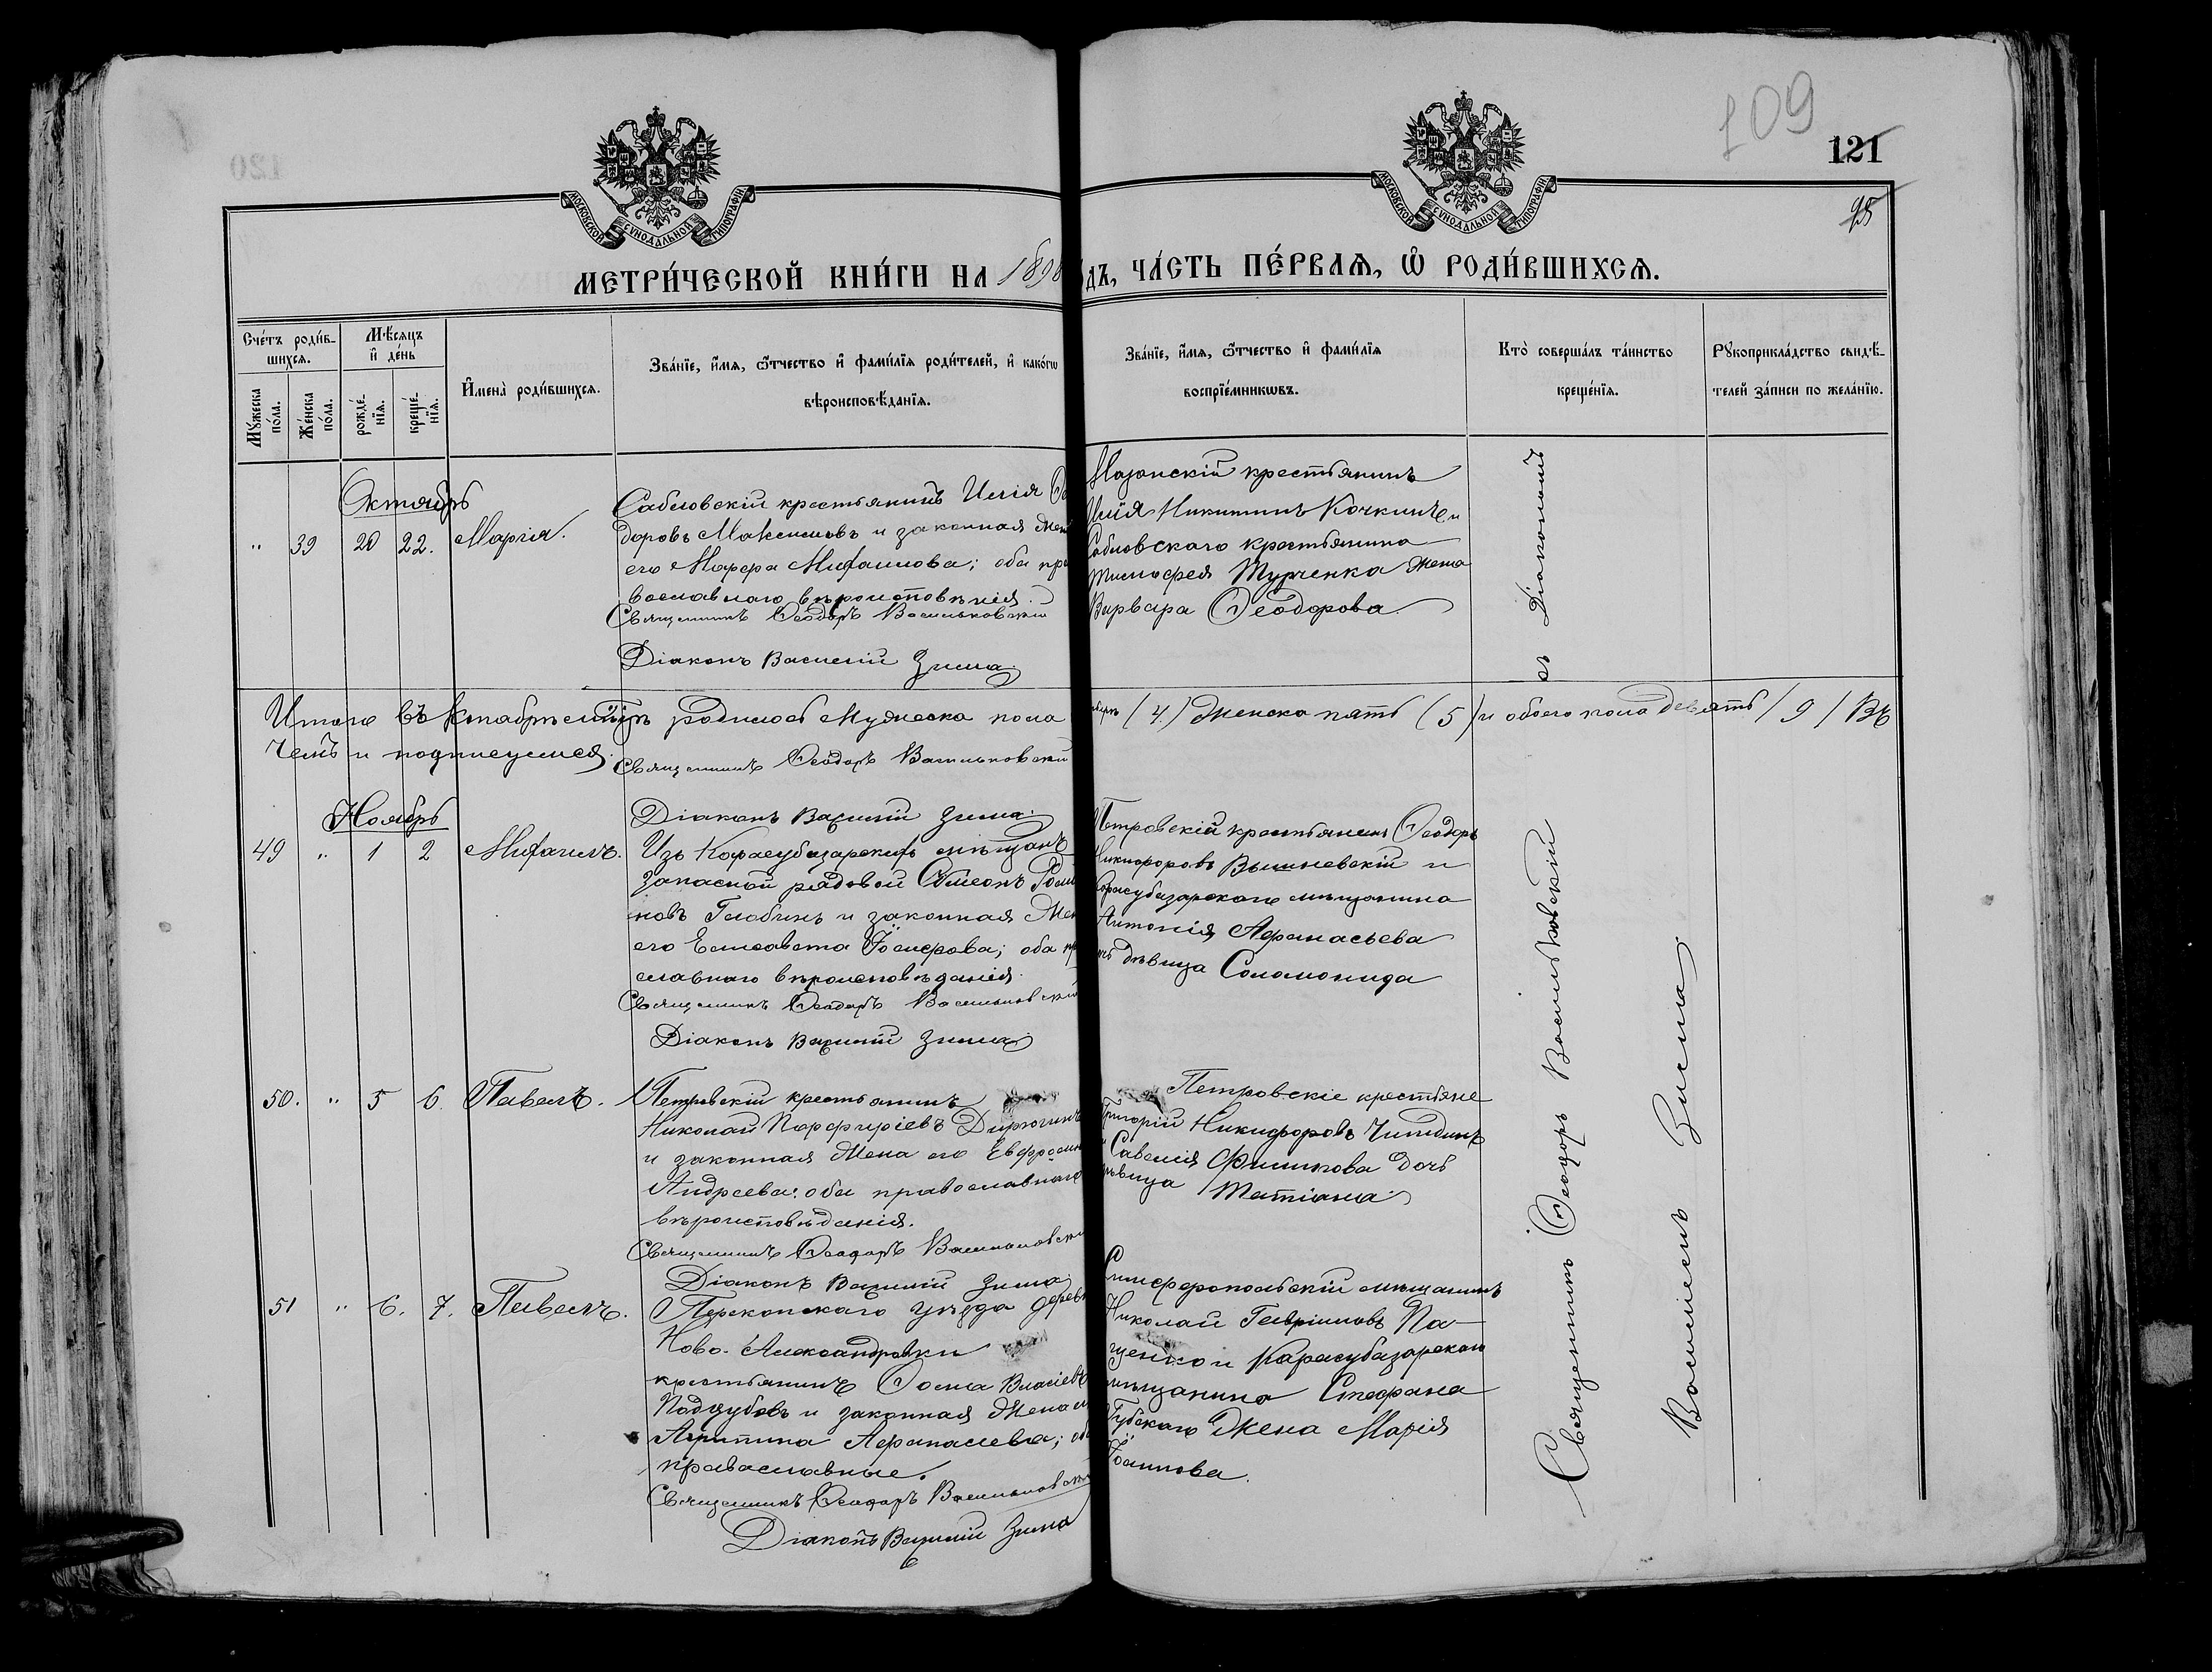 109
121
95
МОСКОВСКОЙ СѴНОДАЛЬНОЙ ТИПОГРАФІИ.
МОСКОВСКОЙ СѴНОДАЛЬНОЙ ТИПОГРАФІИ.
МЕТРИ́ЧЕСКОЙ КНИ́ГИ НА 1898
ДЪ, ЧА́СТЬ ПЕ́РВАЯ, Ѽ РОДИ́ВШИХСЯ.
Сче́тъ роди́в-
шихся.
Мꙋ́жеска по́ла.
Же́нска по́ла.
Мѣ́сяцъ
и҆ де́нь
рожде́-
нїя.
креще́-
нїя.
И҆мена̀ роди́вшихся.
Зва́нїе, и҆́мя, ѻ҆́тчество и҆ фами́лїя роди́телей, и҆ како́гѡ
вѣроисповѣ́данїя.
Зва́нїе, и҆́мя, ѻ҆́тчество и҆ фами́лїя
воспрїе́мникѡвъ.
Кто̀ соверша́лъ та́инство
креще́нїя.
Рꙋкоприкла́дство свидѣ́-
телей за́писи по жела́нїю.
Октябрь
" 39 20 22. Марія.
Сабловскій крестьянинъ Илія Ѳе
доровъ Максимовъ и законная жен
его Марфа Михаилова; оба пра
вославнаго вѣроисповѣнія.
Священникъ Ѳеодоръ Васильковскій
Діаконъ Василій Зима
Мазанскій крестьянинъ
Илія Никитинъ Кочкинъ и
Сабловскаго крестьянина
Тимофея Турченка жена
Варвара Ѳеодорова
Итого въ Октябрѣ мѣсяцѣ родилось мужеска пола
(4) женска пять (5) и обоего пола девять (9) Въ
чемъ и подписуемся.
Священникъ Ѳеодоръ Васильковскій
Діаконъ Василій Зима
Ноябрь
49 " 1 2 Михаилъ.
Изъ Карасубазарскихъ мѣщанъ
запасной рядовой Сѵмеонъ Рома
новъ Глобинъ и законная жен
его Елисавета Іосифова; оба пр
славнаго вѣроисповѣданія.
Священникъ Ѳеодоръ Васильковскій
Діаконъ Василій Зима
Петровскій крестьянинъ Ѳеодоръ
Никифоровъ Вышневскій и
Карасубазарскаго мѣщанина
Антонія Афанасьева
дѣвица Соломонида
50. " 5 6. Павелъ.
Петровскій крестьянинъ
Николай Порфиріевъ
и законная жена его Евфросин
Андреева; оба православнаго
вѣроисповѣданія.
Священникъ Ѳеодоръ Васильковскі
Діаконъ Василій Зима
Петровскіе крестьяне
Григорій Никифоровъ
и Савелія Филиппова дочь
дѣвица Татіана
51 " 6. 7. Павелъ.
Перекопскаго уѣзда дерев
Ново-Александровки
крестьянинъ Ѳома Власіевъ
и законная жена
Агриппина Афанасіева; об
православные.
Священникъ Ѳеодоръ Васильковск
Діаконъ Василій Зима
Симферопольскій мѣщанинъ
Николай Гавріиловъ Па-
щенко и Карасубазарскаго
мѣщанина Стефана
Губскаго жена Марія
Іоаннова.
Священникъ Ѳеодоръ Васильковскій съ Діакономъ
Василіемъ Зима